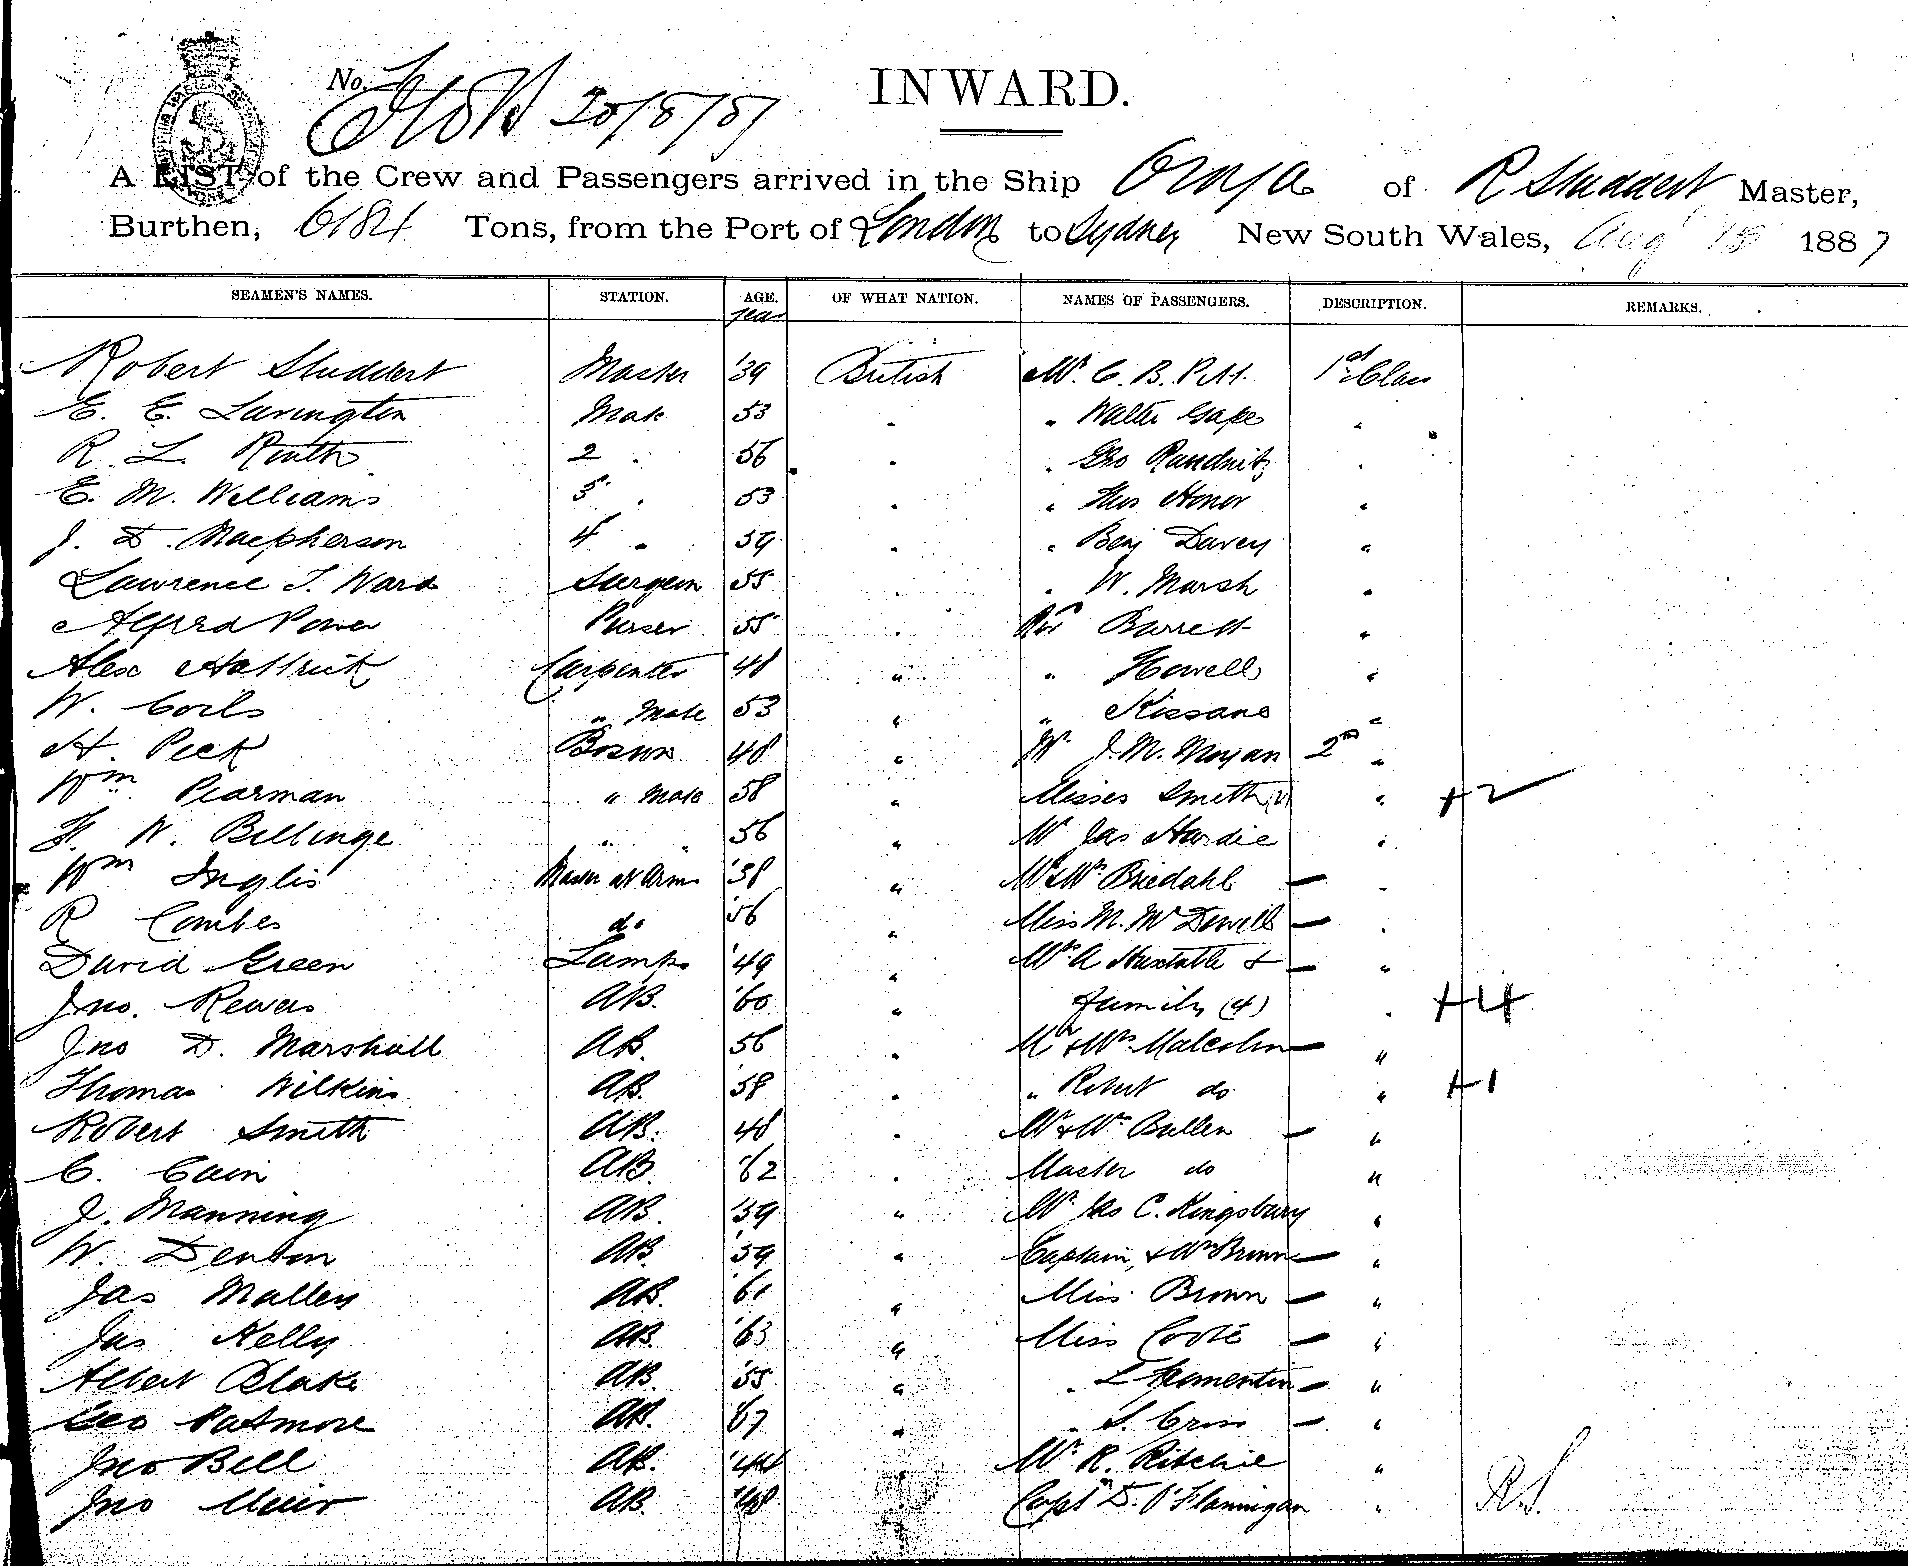 No.
20/8/87
INWARD.
A LIST of the Crew and Passengers arrived in the Ship Oroya of R Studdert Master,
Burthen, 6184 Tons, from the Port of London to Sydney New South Wales, Aug 18 1887
SEAMEN'S NAMES. STATION. AGE. OF WHAT NATION. NAMES OF PASSENGERS. DESCRIPTION. REMARKS.
year
Robert Studdert Master '39 British Mr. C. B. Pitt. 1st Class
E. E. Lavington Mate 53 " " Walter Gape "
R. L. Routh 2 " 56 " " Geo Raudnitz "
E. M. Williams 3 " 53 " " Thos Honor "
J. D. Macpherson 4 " 59 " " Benj Davey "
Lawrence T. Ward Surgeon 55 " " W. Marsh "
Alfred Power Purser 55 " Rev Barrett "
Alex Carpenter 48 " " Howell "
W. Coils " Mate 53 " " Kissane "
H. Peek Bosun 48 " Mr J. M. Moyan 2nd "
Wm Pearman " Mate 58 " Misses Smith (2) " +2
H. W. Billinge " " 56 " Mr Jas Hardie "
Wm Inglis Master at Arms '38 " Mr & Mrs Bredahl — "
R Combes do '56 " Miss M. McDowell — "
David Green Lamps '49 " Mrs A Huxtable & — "
Jno. Rewers AB. '60 " family (4) " +4
Jno D. Marshall AB. 56 " Mr & Mrs Malcolm — "
Thomas Wilkins AB. '58 " " Robert do " +1
Robert Smith AB. 48 " Mr & Mrs Bullen — "
C. Cain AB. '62 " Master do "
J. Manning AB. '59 " Mr Jas C. Kingsbury "
W. Denton AB. '59 " Captain & Mrs Brown — "
Jas Mallen AB. '61 " Miss Brown — "
Jas Kelly AB. '63 " Miss Coote — "
Albert Blake AB. '55 " " L — "
Geo Patmore AB. 67 " " S. — "
Jno Bell AB. '44 " Mr R. Ritchie "
Jno Muir AB. '48 " Capt D. O'Flannigan "
R.S.